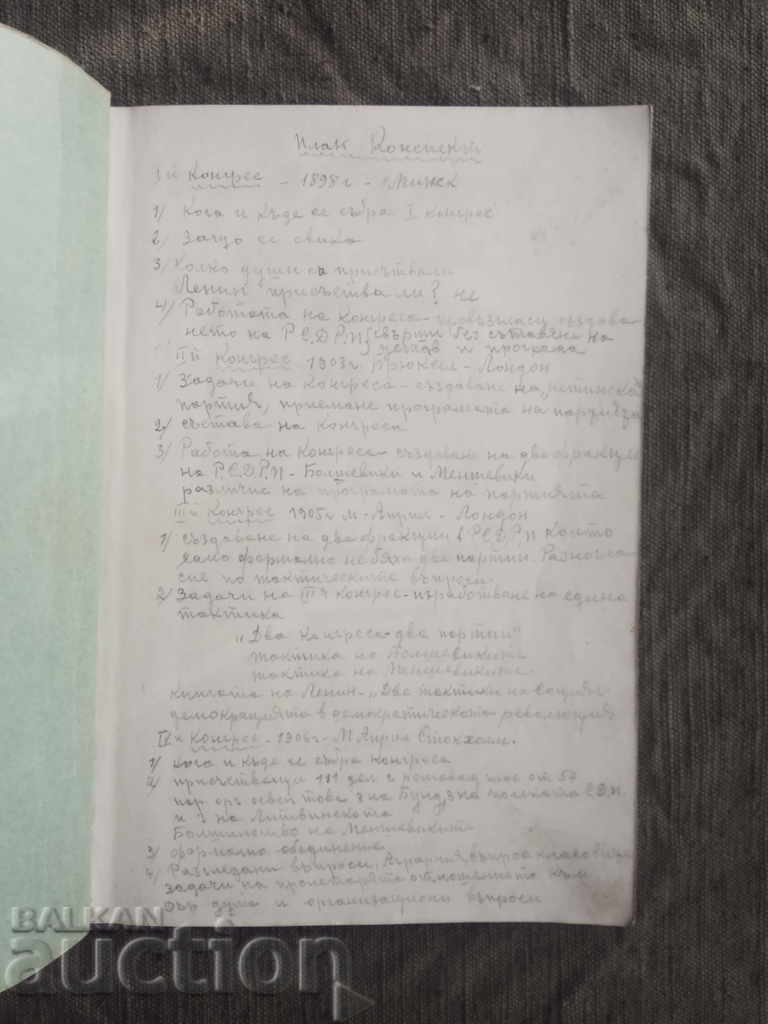 План Конспект
I й Конгрес - 1898 г - Минск
1/ Кога и къде се събра I конгрес
2/ Защо се свика
3/ Колко души са присъствали
Ленин присъства ли? не
4/ Работата на конгреса - създава
нето на Р.С.Д.Р.П свърши без съставяне на
устав и програма
II й конгрес 1903 г. Брюксел - Лондон
1/ Задачи на конгреса - създаване на истинска
партия, приемане програмата на
2/ състава на конгреса
3/ Работа на конгреса - създаване на две фракции
на Р.С.Д.Р.П - Болшевики и Меншевики
различие на програмата на партията
III й конгрес 1905 г м - Април - Лондон
1/ създаване на две фракции в Р.С.Д.Р.П които
само формално не бяха две партии. Разногла
сие по тактическите въпроси.
2/ Задачи на III й конгрес - изработване на едина
тактика
"Два конгреса - два партии"
тактика на Болшевиките
тактика на Меншевиките
книгата на Ленин - "Две тактики на социал
демокрацията в демократическата революция
IV й Конгрес - 1906 г - М Април Стокхолм.
1/ кога и къде се събра конгреса
2/ присъстващи 111 дел с решоващ глас от 57
пар орг освен това 3 на Бунд 3 на полската С.Д.П.
и на Литвинската
Болшинство на Меншевиките
3/ формално обединение
4/ Разгледани въпроси, Аграрния въпрос класовите
задачи на пролетарията отношението към
дър дума и организациони въпроси
BALKAN
auction